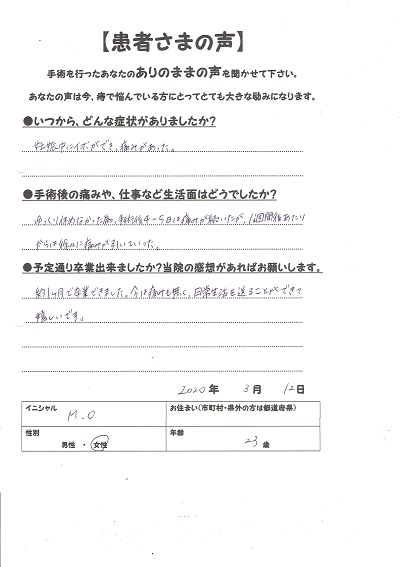 【患者さまの声】
手術を行ったあなたのありのままの声を聞かせて下さい。
あなたの声は今、痔で悩んでいる方にとってとても大きな励みになります。
●いつから、どんな症状がありましたか?
妊娠中にイボができ、痛みがあった。
●手術後の痛みや、仕事など生活面はどうでしたか?
ゆっくり休めなかった為、術後4~5日は痛みが続いたが、1週間後あたり
からは徐々に痛みが引いていった。
●予定通り卒業出来ましたか?当院の感想があればお願いします。
約1ヶ月で卒業できました。今は痛みも無く、日常生活を送ることができて
嬉しいです。
2020年 3月 12日
イニシャル
M.O
お住まい(市町村・県外の方は都道府県)
性別
男性 ・ 女性
年齢
23歳